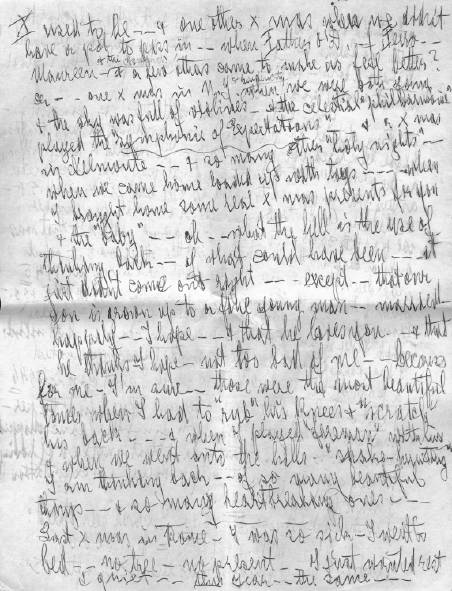 X used to be -- & one other X mas when we didn't
have a pot to piss in -- when Father
Maureen & a few others came to make us feel better?
or -- one X mas in N.Y. when we were both young
& the sky was full of & the celestial "philharmonic"
played the "symphonie of Expectations" & X mas
in -- & so many other "holy nights" --
when we came home loaded up with toys ---- when
I brought home some real X mas presents for you
& the "baby" -- oh -- what the hell is the use of
thinking back -- of what could have been -- it
just didn't come out right -- except -- that our
son is grown up to a fine young man -- married --
happily -- I hope -- & that he loves you -- & that
he thinks I hope -- not too bad of me -- because
for me -- I'm sure -- those were the most beautiful
times when I had to "rub" his knees & "scratch"
his back --- & when I played with him
& when we went into the hills
I am thinking back -- of so many beautiful
things -- & so many heartbreaking ones ---
Last X mas was in -- I was so sick -- I went to
bed -- no tree -- no present -- I just wanted rest
& quiet -- this year -- the same ----